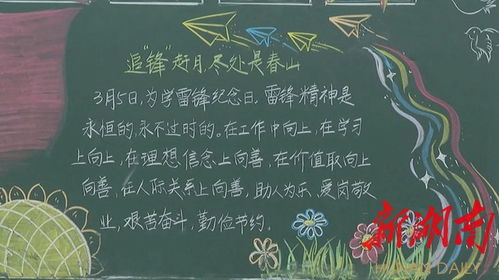 追“锋”赶月,尽处是春山
3月5日,为学雷锋纪念日。雷锋精神是
永恒的,永不过时的。在工作中向上,在学习
上向上,在理想信念上向善,在价值取向上
向善,在人际关系上向善,助人为乐、爱岗敬
业,艰苦奋斗,勤俭节约。
新湖南
HUNAN DAILY